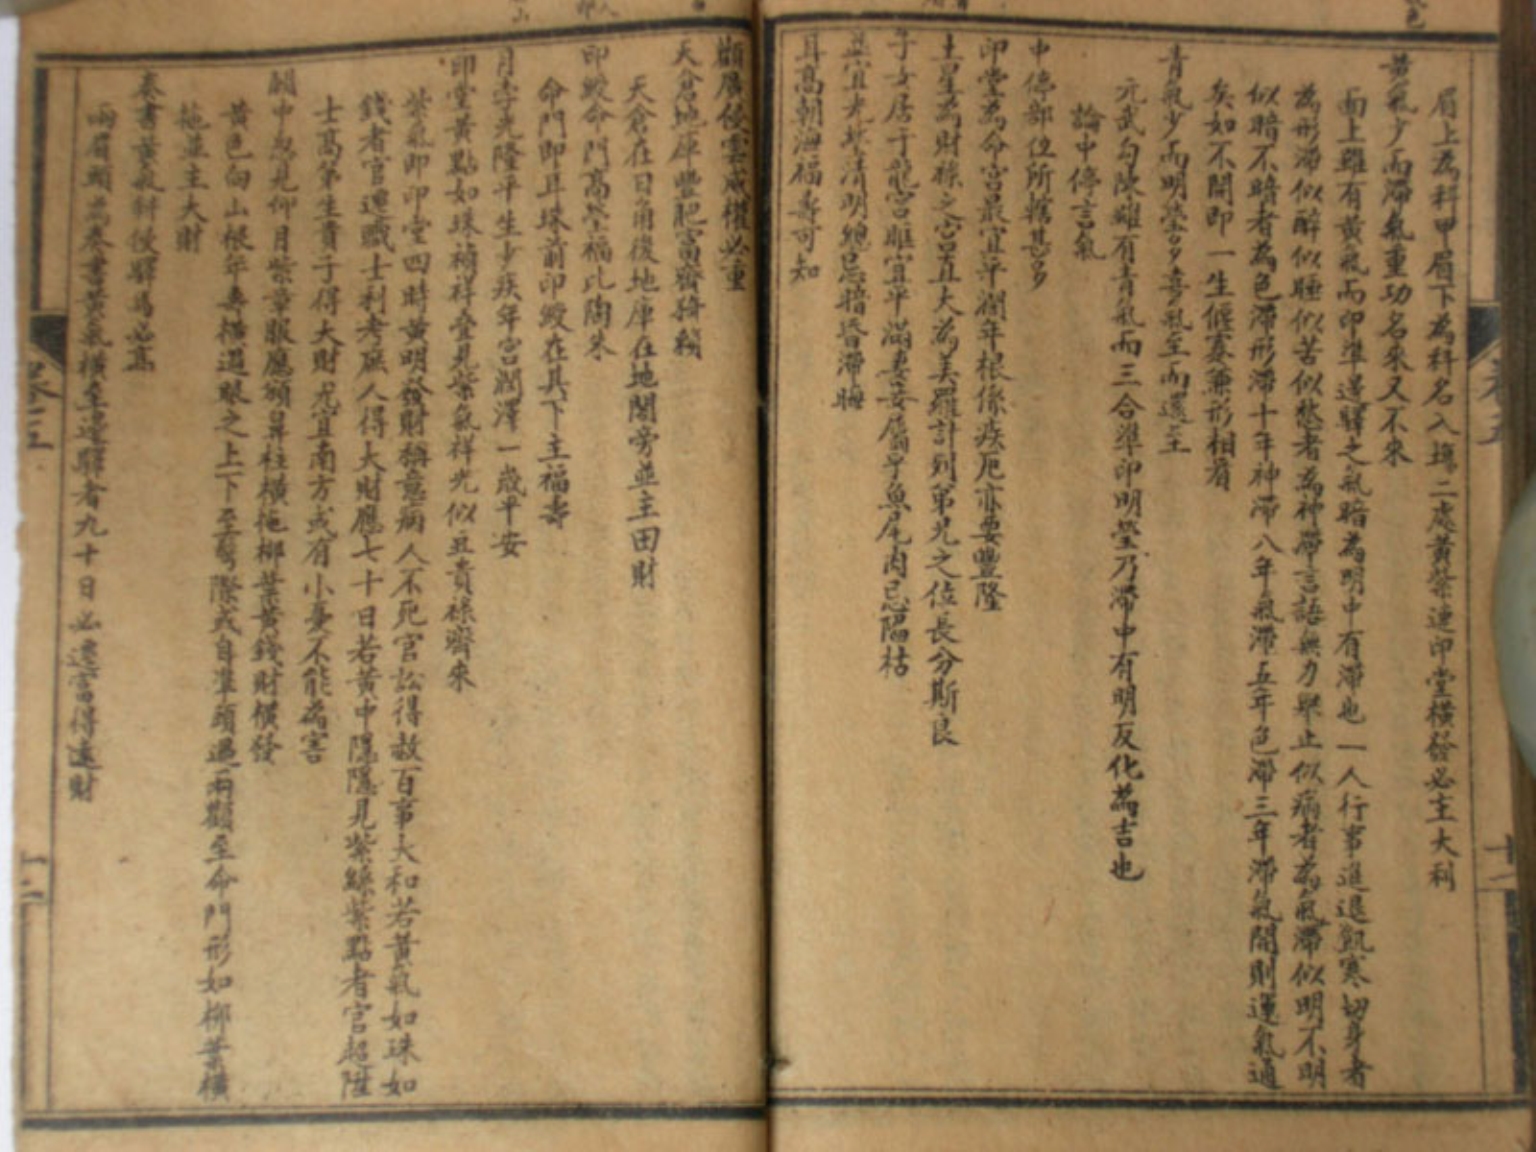 眉上為科甲眉下為科名入塲二處黃紫連印堂橫發必主大利
黃氣少而滯氣重功名來又不來
面上雖有黃氣而印準邊驛之氣暗為明中有滯也一人行事進退飢寒切身者
為形滯似醉似睡似苦似愁者為神滯言語無力舉止似病者為氣滯似明不明
似暗不暗者為色滯形滯十年神滯八年氣滯五年色滯三年滯氣開則運氣通
矣如不開即一生偃蹇兼形相看
青氣少而明瑩多喜氣至而還主
元武勾陳雖有青氣而三合準印明瑩乃滯中有明反化為吉也
論中停言氣
中停部位所轄甚多
印堂為命宮最宜平潤年根係疾厄亦要豐隆
土星為財祿之宮直大為美羅計到弟兄之位長分斯良
子女居于龍宮雖宜平滿妻妾屬乎魚尾肉忌陷枯
並宜光紫清明總忌搢昏滯晦
耳高朝海福壽可知
顴展侵雲威權必重
天倉地庫豐肥富齊猗頓
天倉在日角後地庫在地閣旁並主田財
印綬命門高瑩福比陶朱
命門即耳珠前印綬在其下主福壽
月孛光隆平生少疾年宮潤澤一歲平安
印堂黃點如珠禎祥疊見紫氣祥光似豆貴祿躋來
紫氣即印堂四時黃明發財稱意病人不死官訟得赦百事大和若黃氣如珠如
錢者官運職士利考庶人得大財應七十日若黃中隱隱見紫絲紫點者官超陞
士高第生貴子得大財尤宜南方或有小憂不能為害
顴中忽見仰月紫章服應頒昇柱橫拖柳葉黃錢財橫發
黃色向山根年壽橫過眼之上下至鬢際或自準頭過兩顴至命門形如柳葉橫
拖並主大財
奏書黃氣斜侵驛馬必高
兩眉頭為奏書黃氣橫至邊驛者九十日必遷官得遠財
卷五
十二